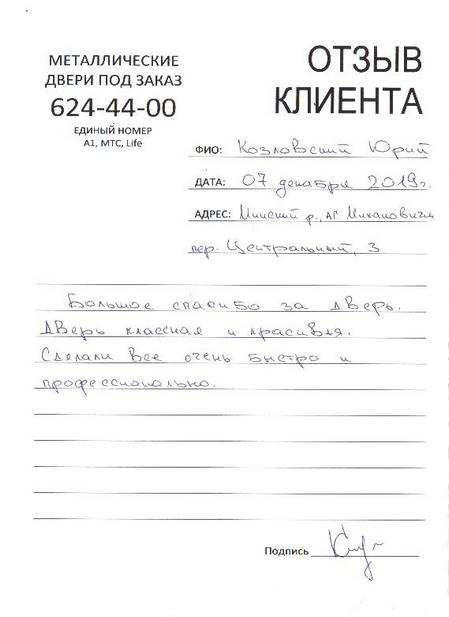 МЕТАЛЛИЧЕСКИЕ
ДВЕРИ ПОД ЗАКАЗ
624-44-00
ЕДИНЫЙ НОМЕР
A1, МТС, Life
ОТЗЫВ
КЛИЕНТА
ФИО: Козловский Юрий
ДАТА: 07 декабря 2019г.
АДРЕС: Минский р., аг Михановичи
пер. Центральный, 3
Большое спасибо за дверь.
Дверь классная и красивая.
Сделали все очень быстро и
профессионально.
Подпись